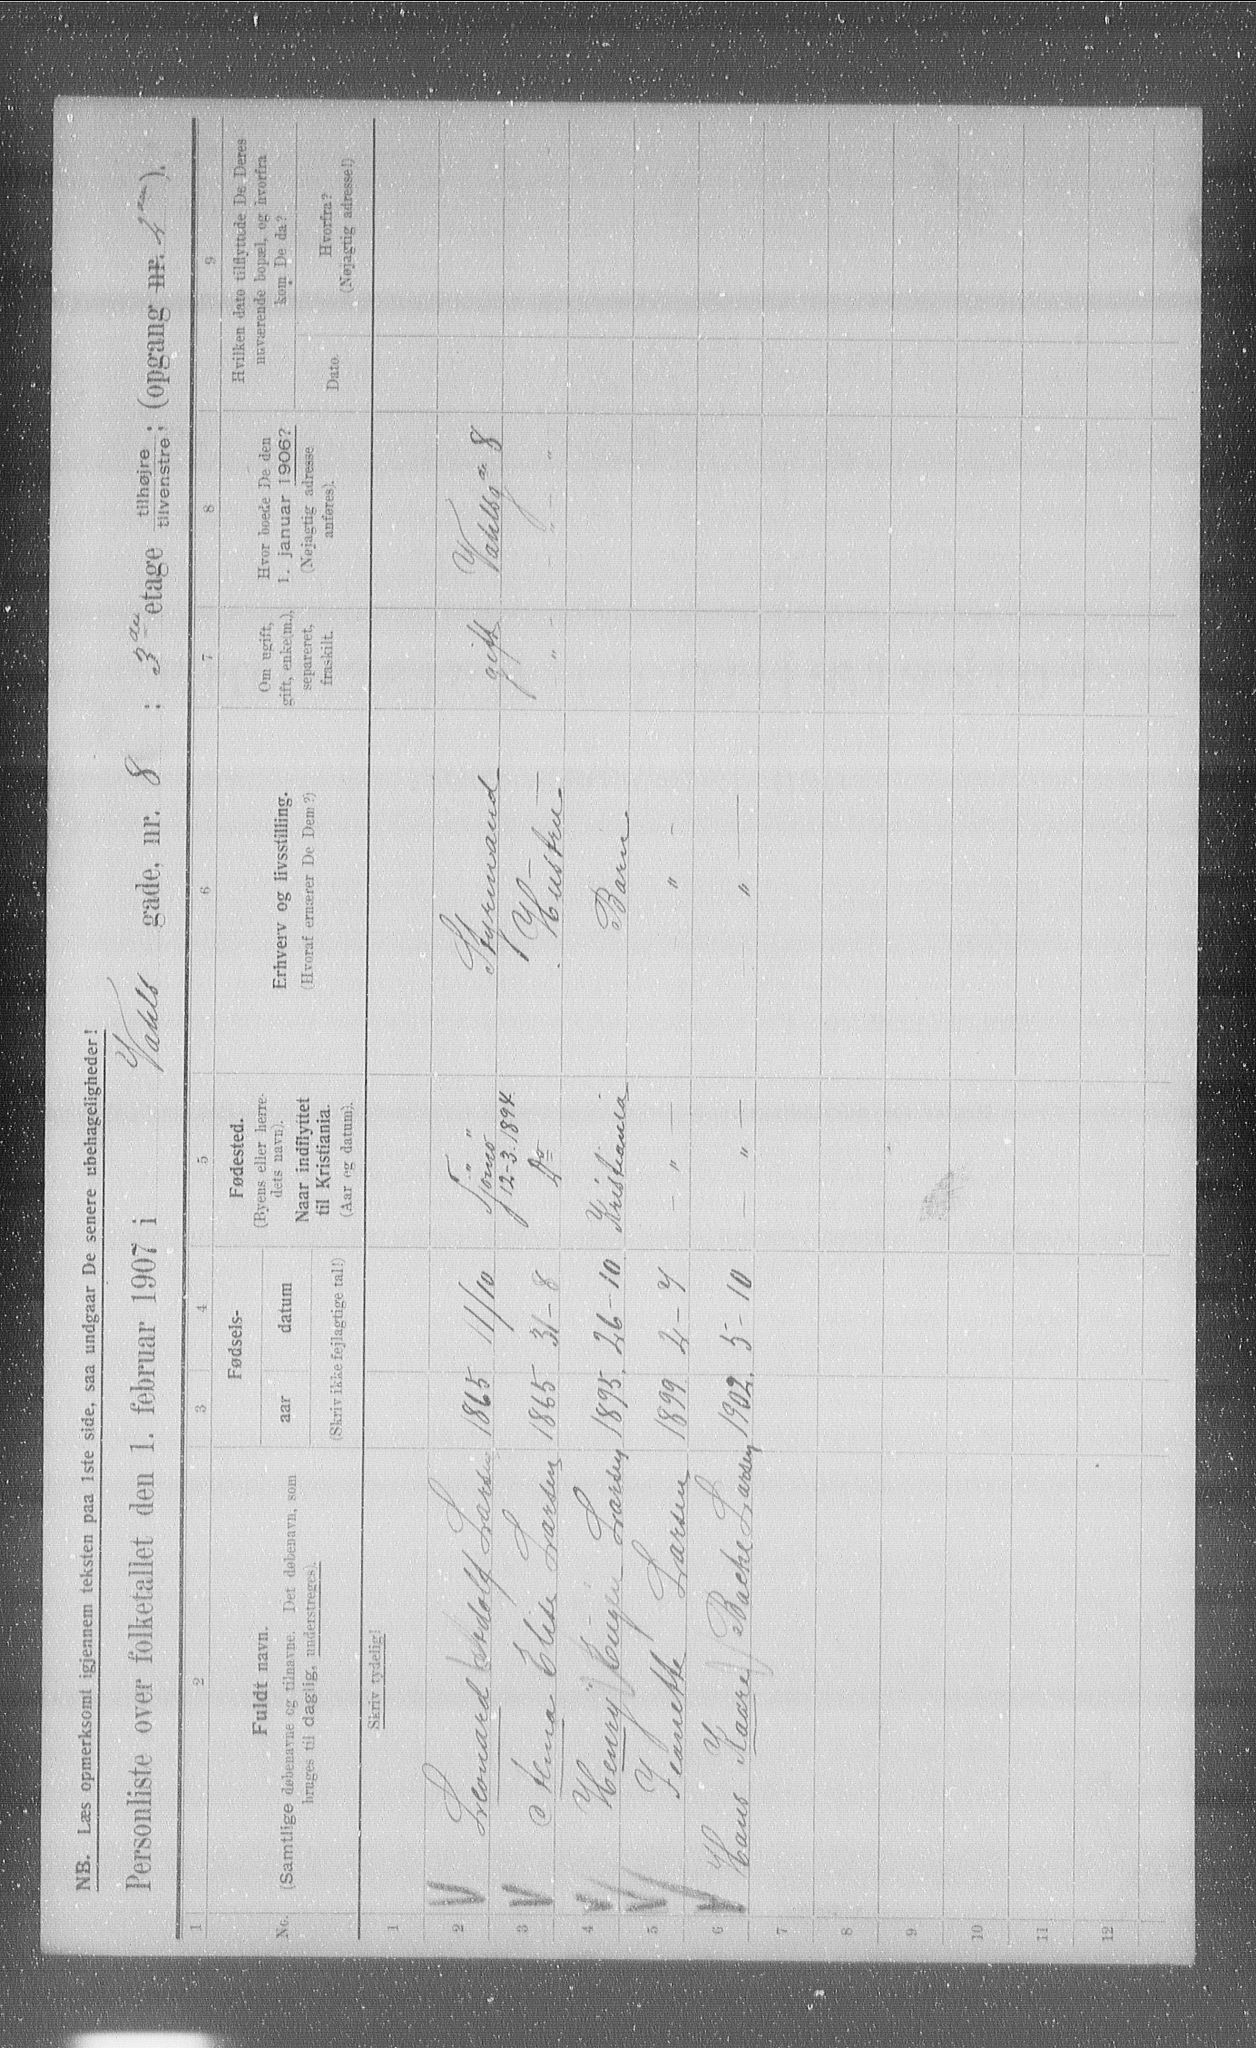 NB. Læs opmerksomt igjennem teksten paa 1ste side, saa undgaar De senere ubehageligheder!
Personliste over folketallet den 1. februar 1907 i Vahls gade, nr. 8 ; 3die etage tilhøjre ; tilvenstre ; (opgang nr. ).
1 2 3 4 5 6 7 8 9
No. Fuldt navn. (Samtlige døbenavne og tilnavne. Det døbenavn, som bruges til daglig, understreges).
Fødsels- aar datum (Skriv ikke fejlagtige tal!)
Fødested. (Byens eller herredets navn). Naar indflyttet til Kristiania. (Aar og datum).
Erhverv og livsstilling. (Hvoraf ernærer De Dem?)
Om ugift, gift, enke(m.), separeret, fraskilt.
Hvor boede De den 1. januar 1906? (Nøjagtig adresse anføres).
Hvilken dato tilflyttede De Deres nuværende bopæl, og hvorfra kom De da?
Dato. Hvorfra? (Nøjagtig adresse!)
Skriv tydelig!
1
2 Leonard Larsen 1865 11/10 Tjømø " 12-3. 1894 Styrmand gift Vahlsg 8
3 Elise Larsen 1865 31-8 do Hustru - " - - " - "
4 Henry Eugen Larsen 1895 26-10 Kristiania Barn
5 Jeanette Larsen 1899 2-7 - " - - " -
6 Hans Kaare Bache Larsen 1902. 5-10 - " - " -
7
8
9
10
11
12